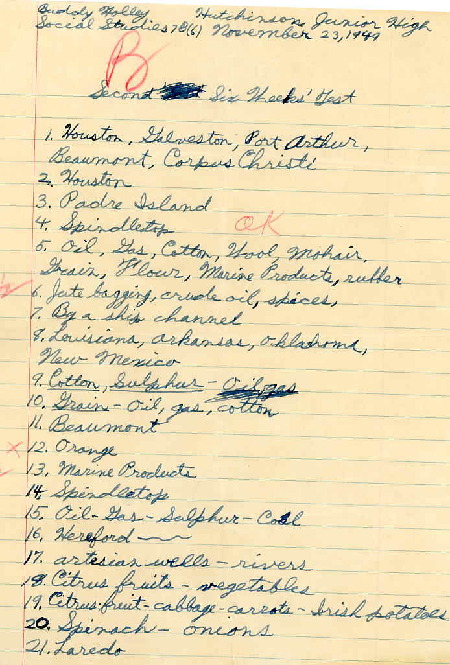 Buddy Holley Hutchinson Junior High
Social Studies 78(6) November 23, 1949
B
Second Six Weeks' Test
1. Houston, Galveston, Port Arthur,
Beaumont, Corpus Christi
2. Houston
3. Padre Island
4. Spindletop
OK
5. Oil, Gas, Cotton, Wool, Mohair,
Grain, Flour, Marine Products, rubber
6. Jute bagging, crude oil, spices,
7. By a ship channel
8. Louisiana, Arkansas, Oklahoma,
New Mexico
9. Cotton, Sulphur - Oil, gas
10. Grain - Oil, gas, cotton
11. Beaumont
x 12. Orange
13. Marine Products
14. Spindletop
15. Oil - Gas - Sulphur - Coal
16. Hereford
17. artesian wells - rivers
18. Citrus fruits - vegetables
19. Citrus fruit - cabbage - carrots - Irish potatoes
20. Spinach - onions
21. Laredo